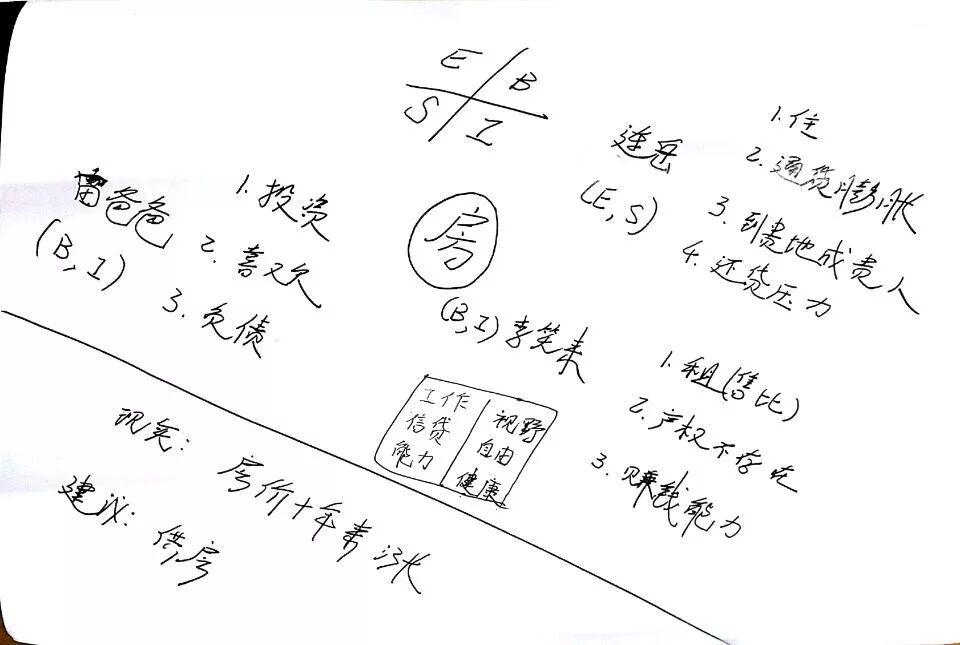 E B
S I
富爸爸
(B, I)
1. 投资
2. 喜欢
3. 负债
房
连岳
(E, S)
1. 住
2. 通货膨胀
3. 到贵地成贵人
4. 还贷压力
(B, I) 李笑来
工作
信贷
能力
视野
自由
健康
1. 租(售比)
2. 产权不存在
3. 赚钱能力
现实: 房价十年来涨
建议: 供房